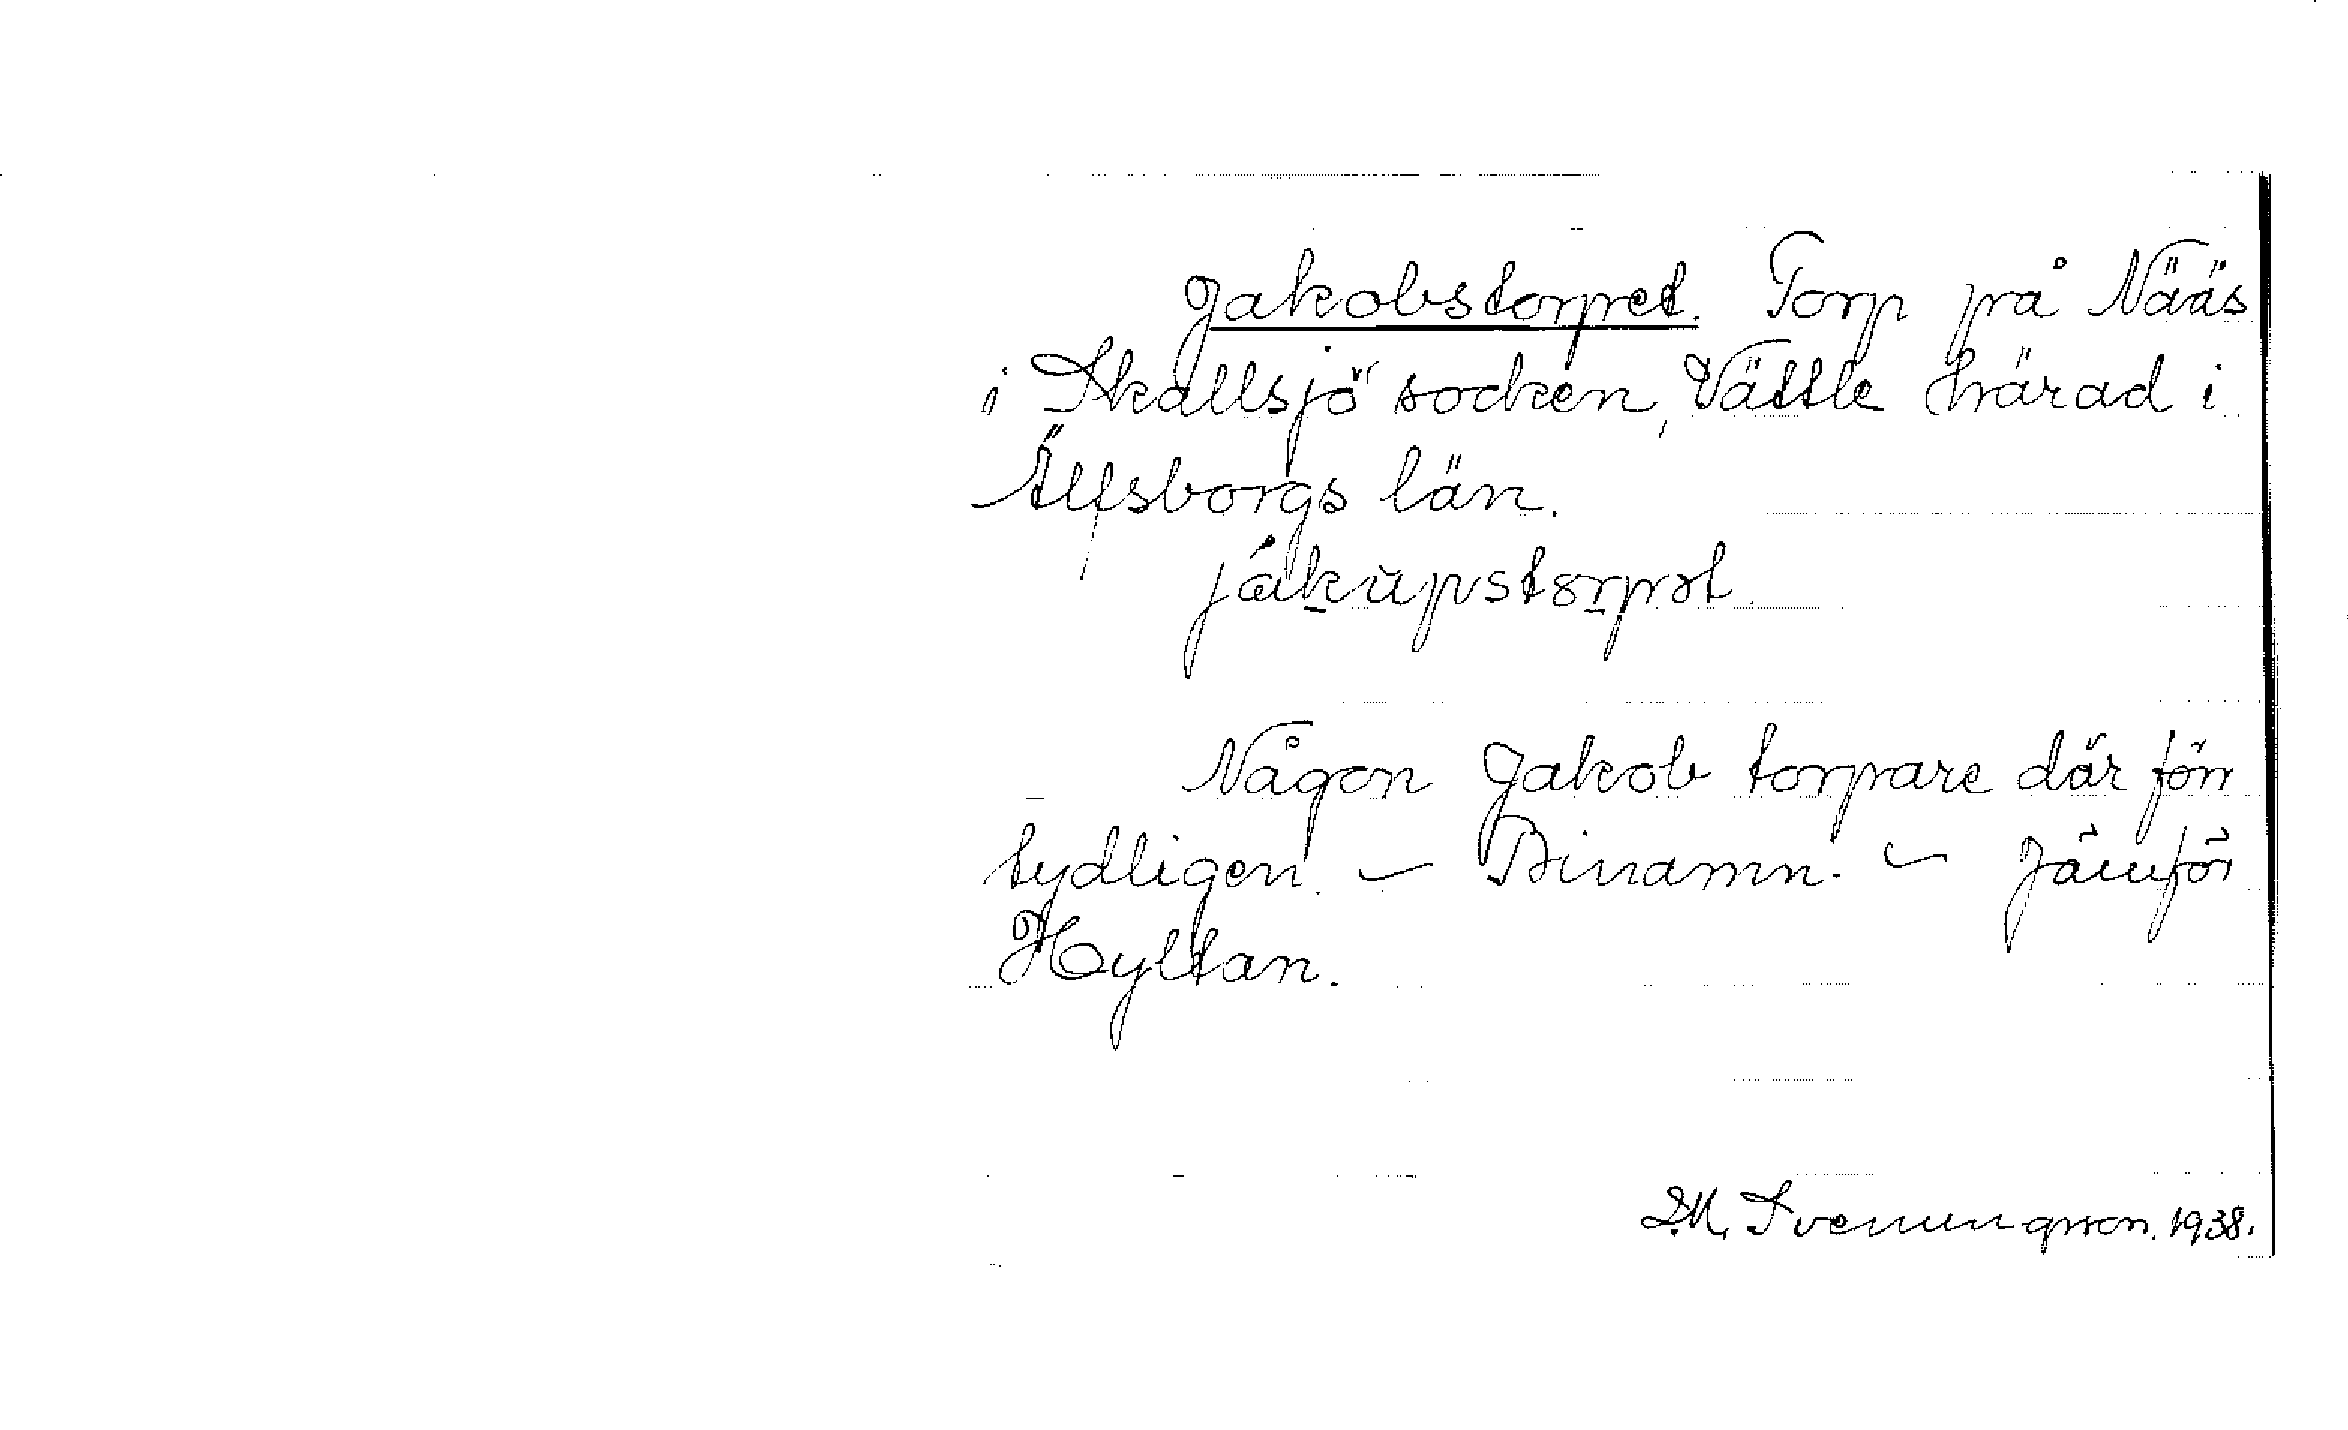 Jakobstorpet. Torp på Nääs
i Skallsjö socken, Vättle härad i
Älfsborgs län.
jákupstorpət
Någon Jakob torpare där förr
tydligen. – Binamn. – Jämför
Hyltan.
D.M. Svenungsson. 1938.